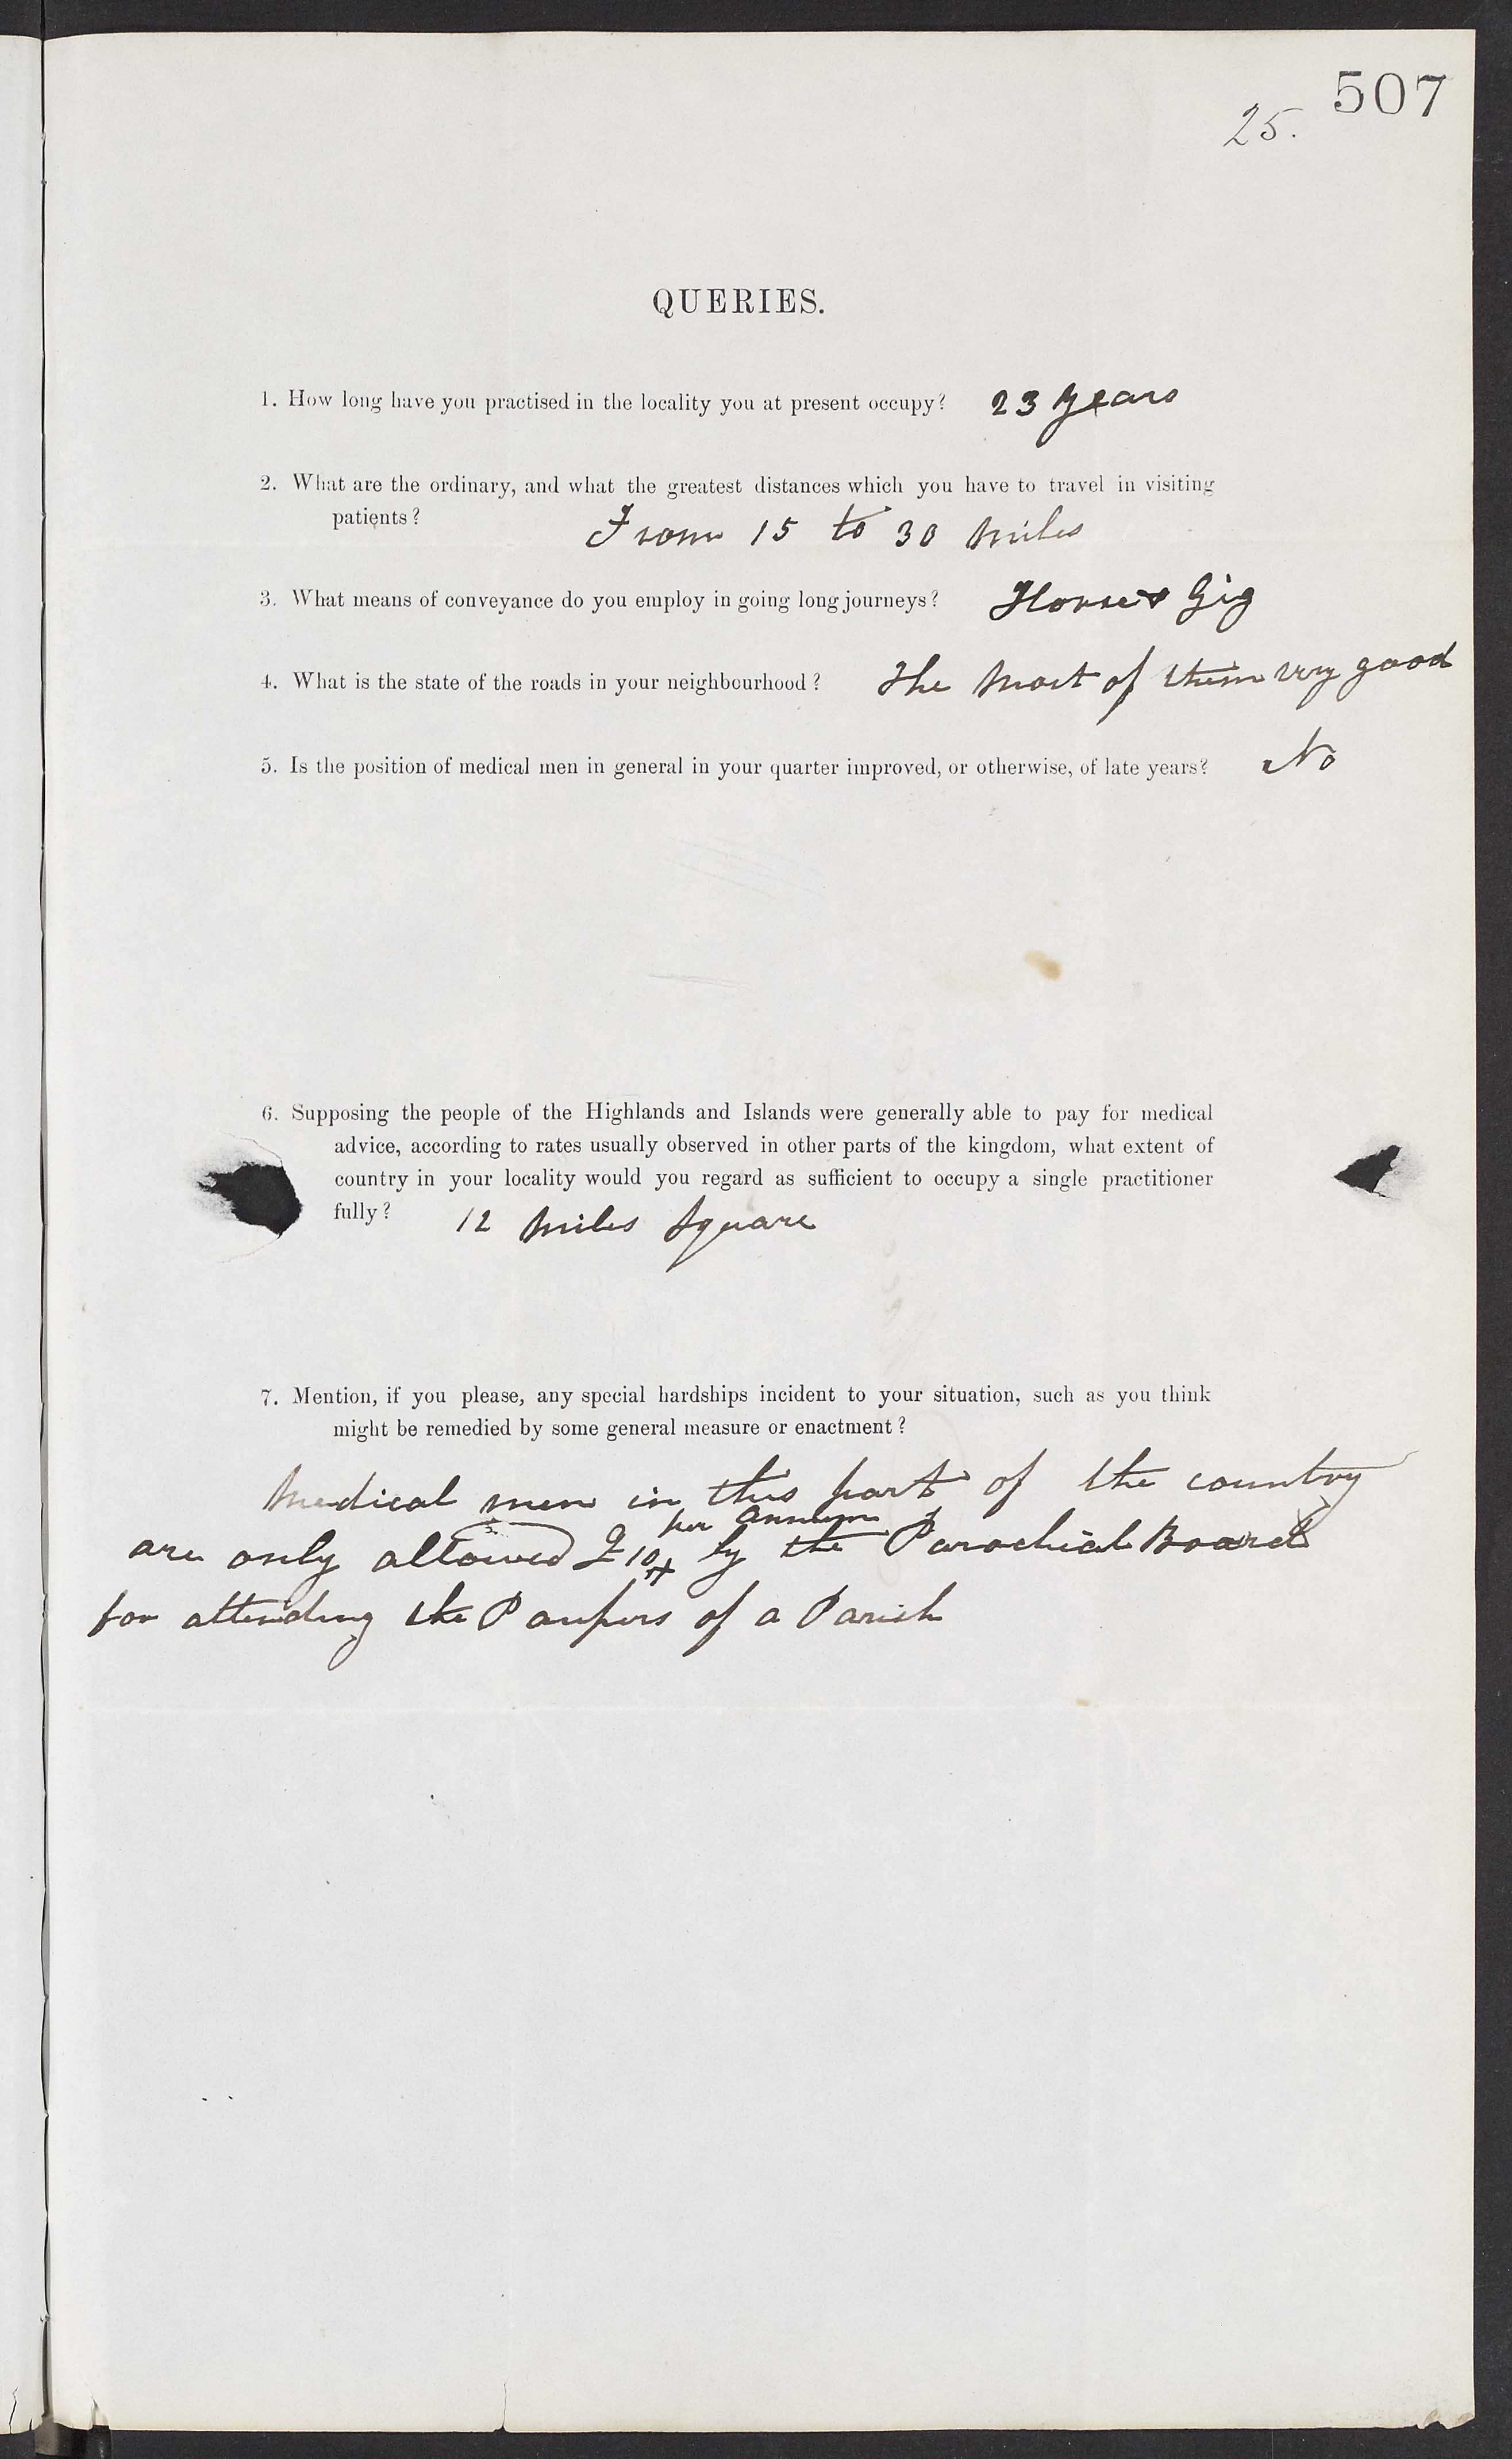 507
25.
QUERIES.
1. How long have you practised in the locality you at present occupy? 23 Years
2. What are the ordinary, and what the greatest distances which you have to travel in visiting
patients?
From 15 to 30 Miles
3. What means of conveyance do you employ in going long journeys? Horse & Gig
4. What is the state of the roads in your neighbourhood? The Most of them very good
5. Is the position of medical men in general in your quarter improved, or otherwise, of late years? No
6. Supposing the people of the Highlands and Islands were generally able to pay for medical
advice, according to rates usually observed in other parts of the kingdom, what extent of
country in your locality would you regard as sufficient to occupy a single practitioner
fully? 12 Miles Square
7. Mention, if you please, any special hardships incident to your situation, such as you think
might be remedied by some general measure or enactment?
Medical men in this part of the country
per annum
are only allowed £10 x by the Parochial Board
for attending the Paupers of a Parish